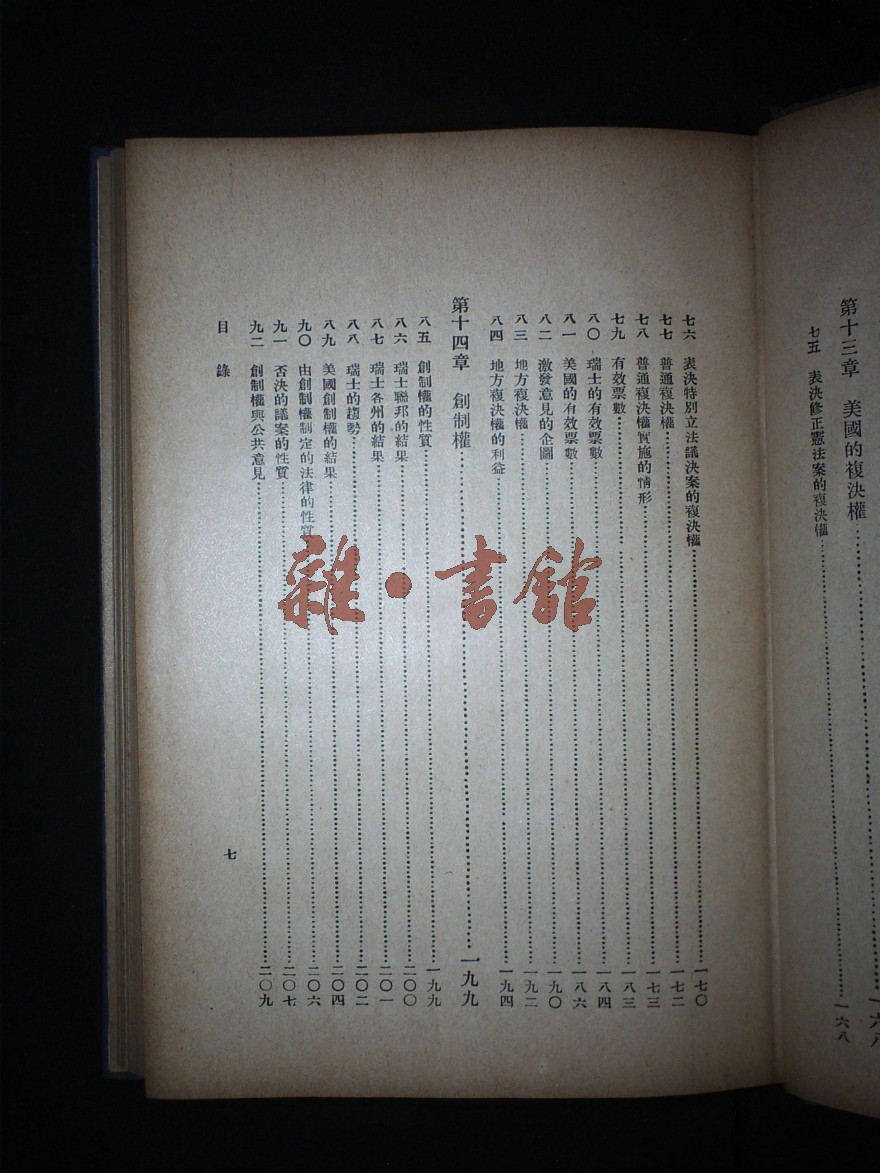 第十三章　美國的複決權……一六八
七五　表決修正憲法案的複決權……一六八
七六　表決特別立法議決案的複決權……一七〇
七七　普通複決權……一七二
七八　普通複決權實施的情形……一七三
七九　有效票數……一八三
八〇　瑞士的有效票數……一八四
八一　美國的有效票數……一八六
八二　激發意見的企圖……一九〇
八三　地方複決權……一九二
八四　地方複決權的利益……一九四
第十四章　創制權……一九九
八五　創制權的性質……一九九
八六　瑞士聯邦的結果……二〇〇
八七　瑞士各州的結果……二〇一
八八　瑞士的趨勢……二〇二
八九　美國創制權的結果……二〇四
九〇　由創制權制定的法律的性質……二〇六
九一　否決的議案的性質……二〇七
九二　創制權與公共意見……二〇九
目錄
七
雜·書館